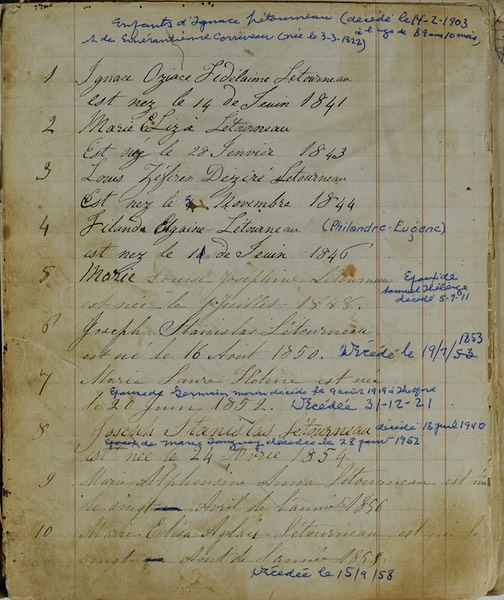 Enfants d'Ignace Létourneau (décédé le 14-2-1903
à l'age de 89 ans 10 mois)
et de Emérandienne Corriveau (née le 3-3-1822)
1 Ignace Oziace Fidélaime Létourneau
est nez le 14 de Jeuin 1841
2 Marie Eliza Létourneau
Est né le 20 Jenvier 1843
3 Louis Zéféren Deziré Letourneau
Est nez le Novembre 1844
4 Filande Etgaine Létourneau (Philandre-Eugene)
est nez le de Jeuin 1846
5 Marie Louise Joséphine Létourneau
Epouse de
Samuel Théberge
décédé 5-7-11
est née le Juillet 1848.
6 Joseph Stanislas Létourneau
est né le 16 Aout 1850. Décédé le 19/7/53
1853
7 Marie est née
Epouse de Germain Morin décédé le 9 août 1919 à Thetford
le 20 Juin 1852. Décédée 31-12-21
8 Joseph Stanislas Létourneau décédé 13 juil 1940
Epoux de Marie décédée le 28 janv 1952
est née le 24 1854
9 Marie Alphonsine Létourneau est née
le vingt Avril de l'année 1856
10 Marie Eliza Aglaé Létourneau est née le
vingt Aout de l'année 1858
Décédée le 15/9/58